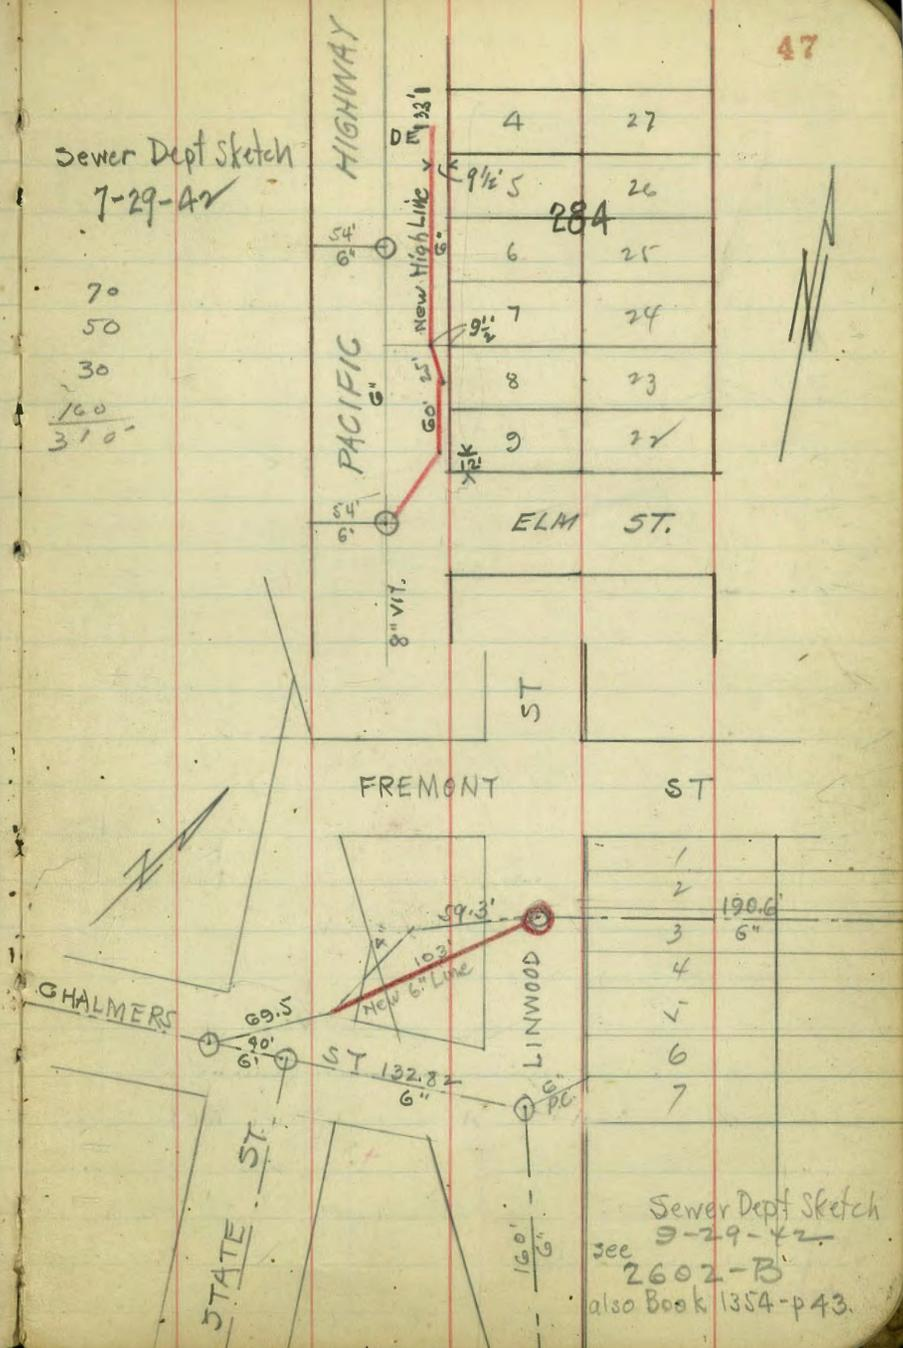 47
Sewer Dept Sketch
7-29-42
70
50
30
160
310'
PACIFIC HIGHWAY
54'
6'
6"
54'
6'
8" VIT.
DE
133'
New High Line
6"
9½'
9½'
25'
60'
284
4 27
5 26
6 25
7 24
8 23
9 22
ELM ST.
N
ST
FREMONT ST
N
1
2
3
4
5
6
7
190.6'
6"
59.3'
4"
103'
New 6" Line
LINWOOD
CHALMERS
69.5
40'
6'
ST
132.82
6"
6"
P.C.
STATE ST.
160'
6"
Sewer Dept Sketch
9-29-42
see
2602-B
also Book 1354-p43.